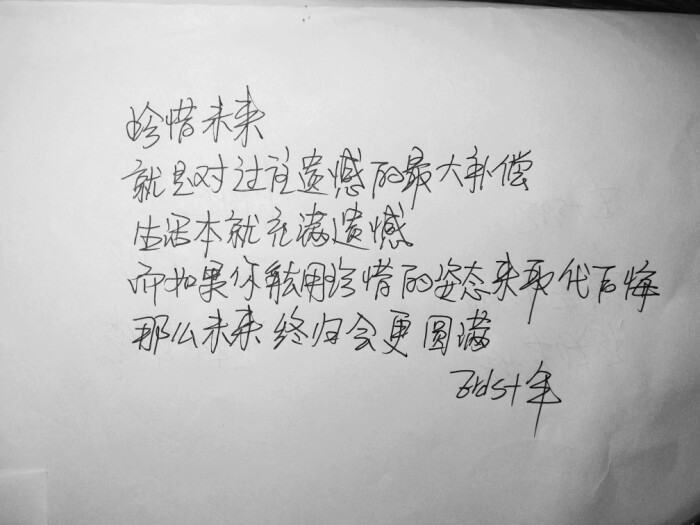 珍惜未来
就是对过往遗憾的最大补偿
生活本就充满遗憾
而如果你能用珍惜的姿态来取代后悔
那么未来终归会更圆满
年